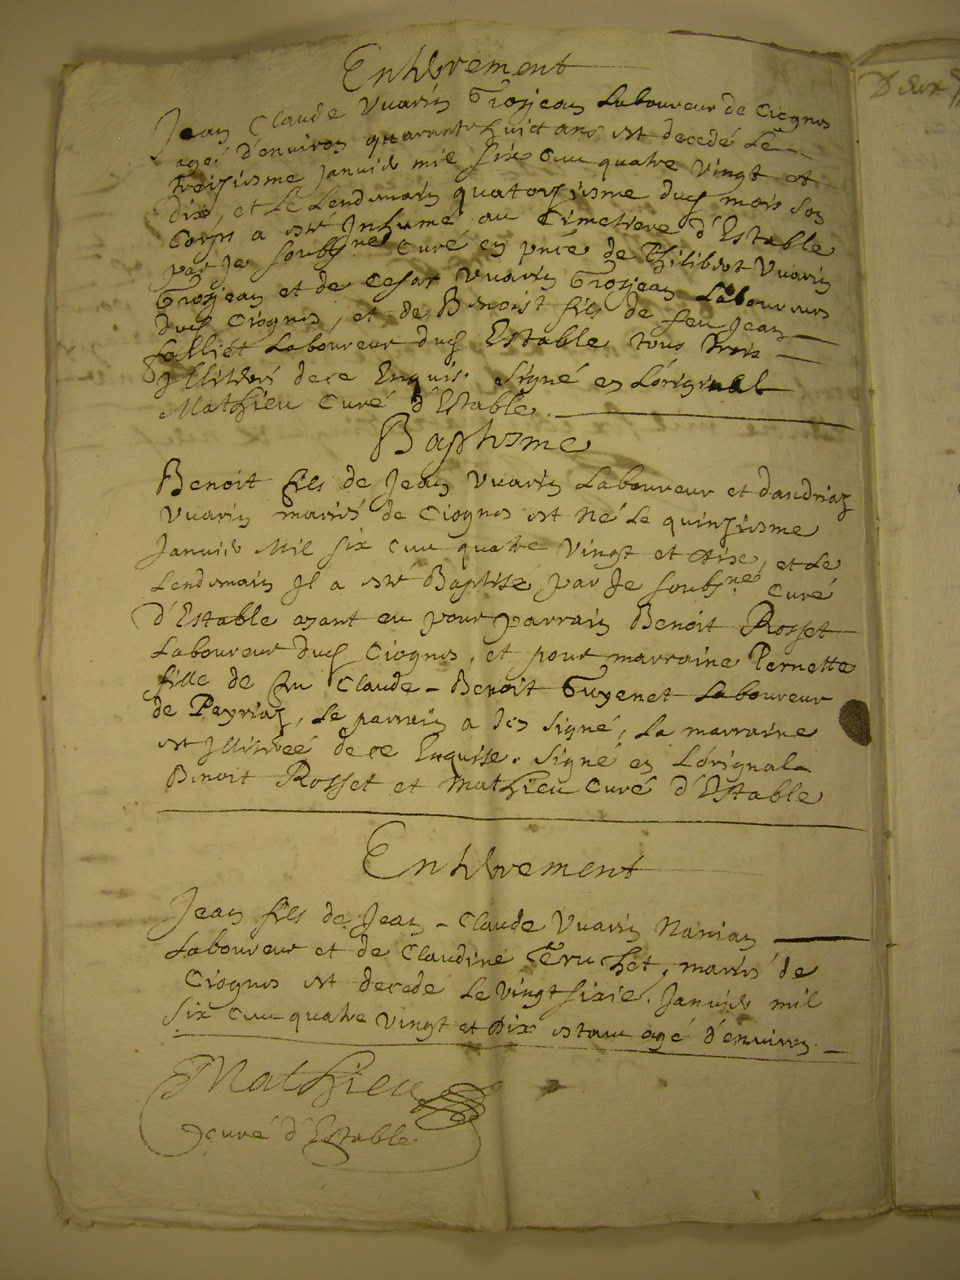 Enterrement
Jean Claude Vuarin Grosjean Laboureur de Ciognes
agé d'environ quarante huict ans est decedé Le
treiziesme Janvier mil six cens quatre vingt et
dix, et le Lendemain quatorziesme dud mois son
Corps a esté Inhumé au Cimetiere d'Estable
par Je soubsné Curé en pnce de Philibert Vuarin
Grosjean et de Cesar Vuarin Grosjean Laboureurs
dud Ciognes, et de Benoist fils de feu Jean
Laboureur dud Estable tous trois
Illiterés de ce Enquis. Signé en L'original
Mathieu Curé d'Estable.
Baptesme
Benoit fils de Jean Vuarin Laboureur et dandriaz
Vuarin mariés de Ciognes est Né Le quinziesme
Janvier Mil six cens quatre vingt et dixe, et Le
Lendemain Il a esté Baptisé par Je soubsné Curé
d'Estable ayant eu pour parrain Benoit Rosset
Laboureur dud Ciognes, et pour marraine Pernette
fille de feu Claude-Benoit Guyenet Laboureur
de Peyriaz, Le parrain a signé, La marraine
est Illiterée de ce Enquise. Signé en L'orignal
Benoit Rosset et Mathieu Curé d'Estable
Enterrement
Jean fils de Jean-Claude Vuarin Nanian
Laboureur et de Claudine Teruchet, mariés de
Ciognes est decede Le Vingt sixie. Janvier mil
six cens quatre vingt et dix estant agé d'environ
Mathieu
curé d'Estable